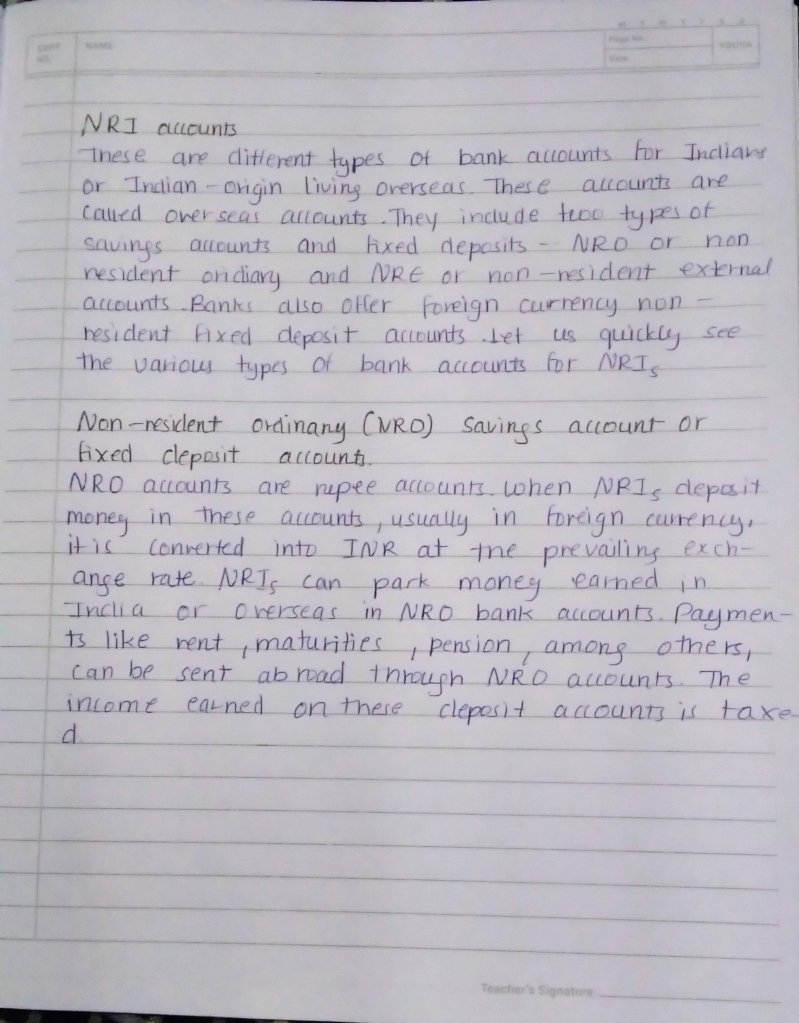 M T W T F S S
EXPT. NO.
NAME
Page No.:
Date:
YOUVA
NRI accounts
These are different types of bank accounts for Indians
or Indian-origin living overseas. These accounts are
called overseas accounts. They include two types of
savings accounts and fixed deposits - NRO or non
resident oridiary and NRE or non-resident external
accounts. Banks also offer foreign currency non-
resident fixed deposit accounts. Let us quickly see
the various types of bank accounts for NRIs
Non-resident ordinary (NRO) savings account or
fixed deposit accounts.
NRO accounts are rupee accounts. When NRIs deposit
money in these accounts, usually in foreign currency,
it is converted into INR at the prevailing exch-
ange rate. NRIs can park money earned in
India or overseas in NRO bank accounts. Paymen-
ts like rent, maturities, pension, among others,
can be sent abroad through NRO accounts. The
income earned on these deposit accounts is taxe
d.
Teacher's Signature